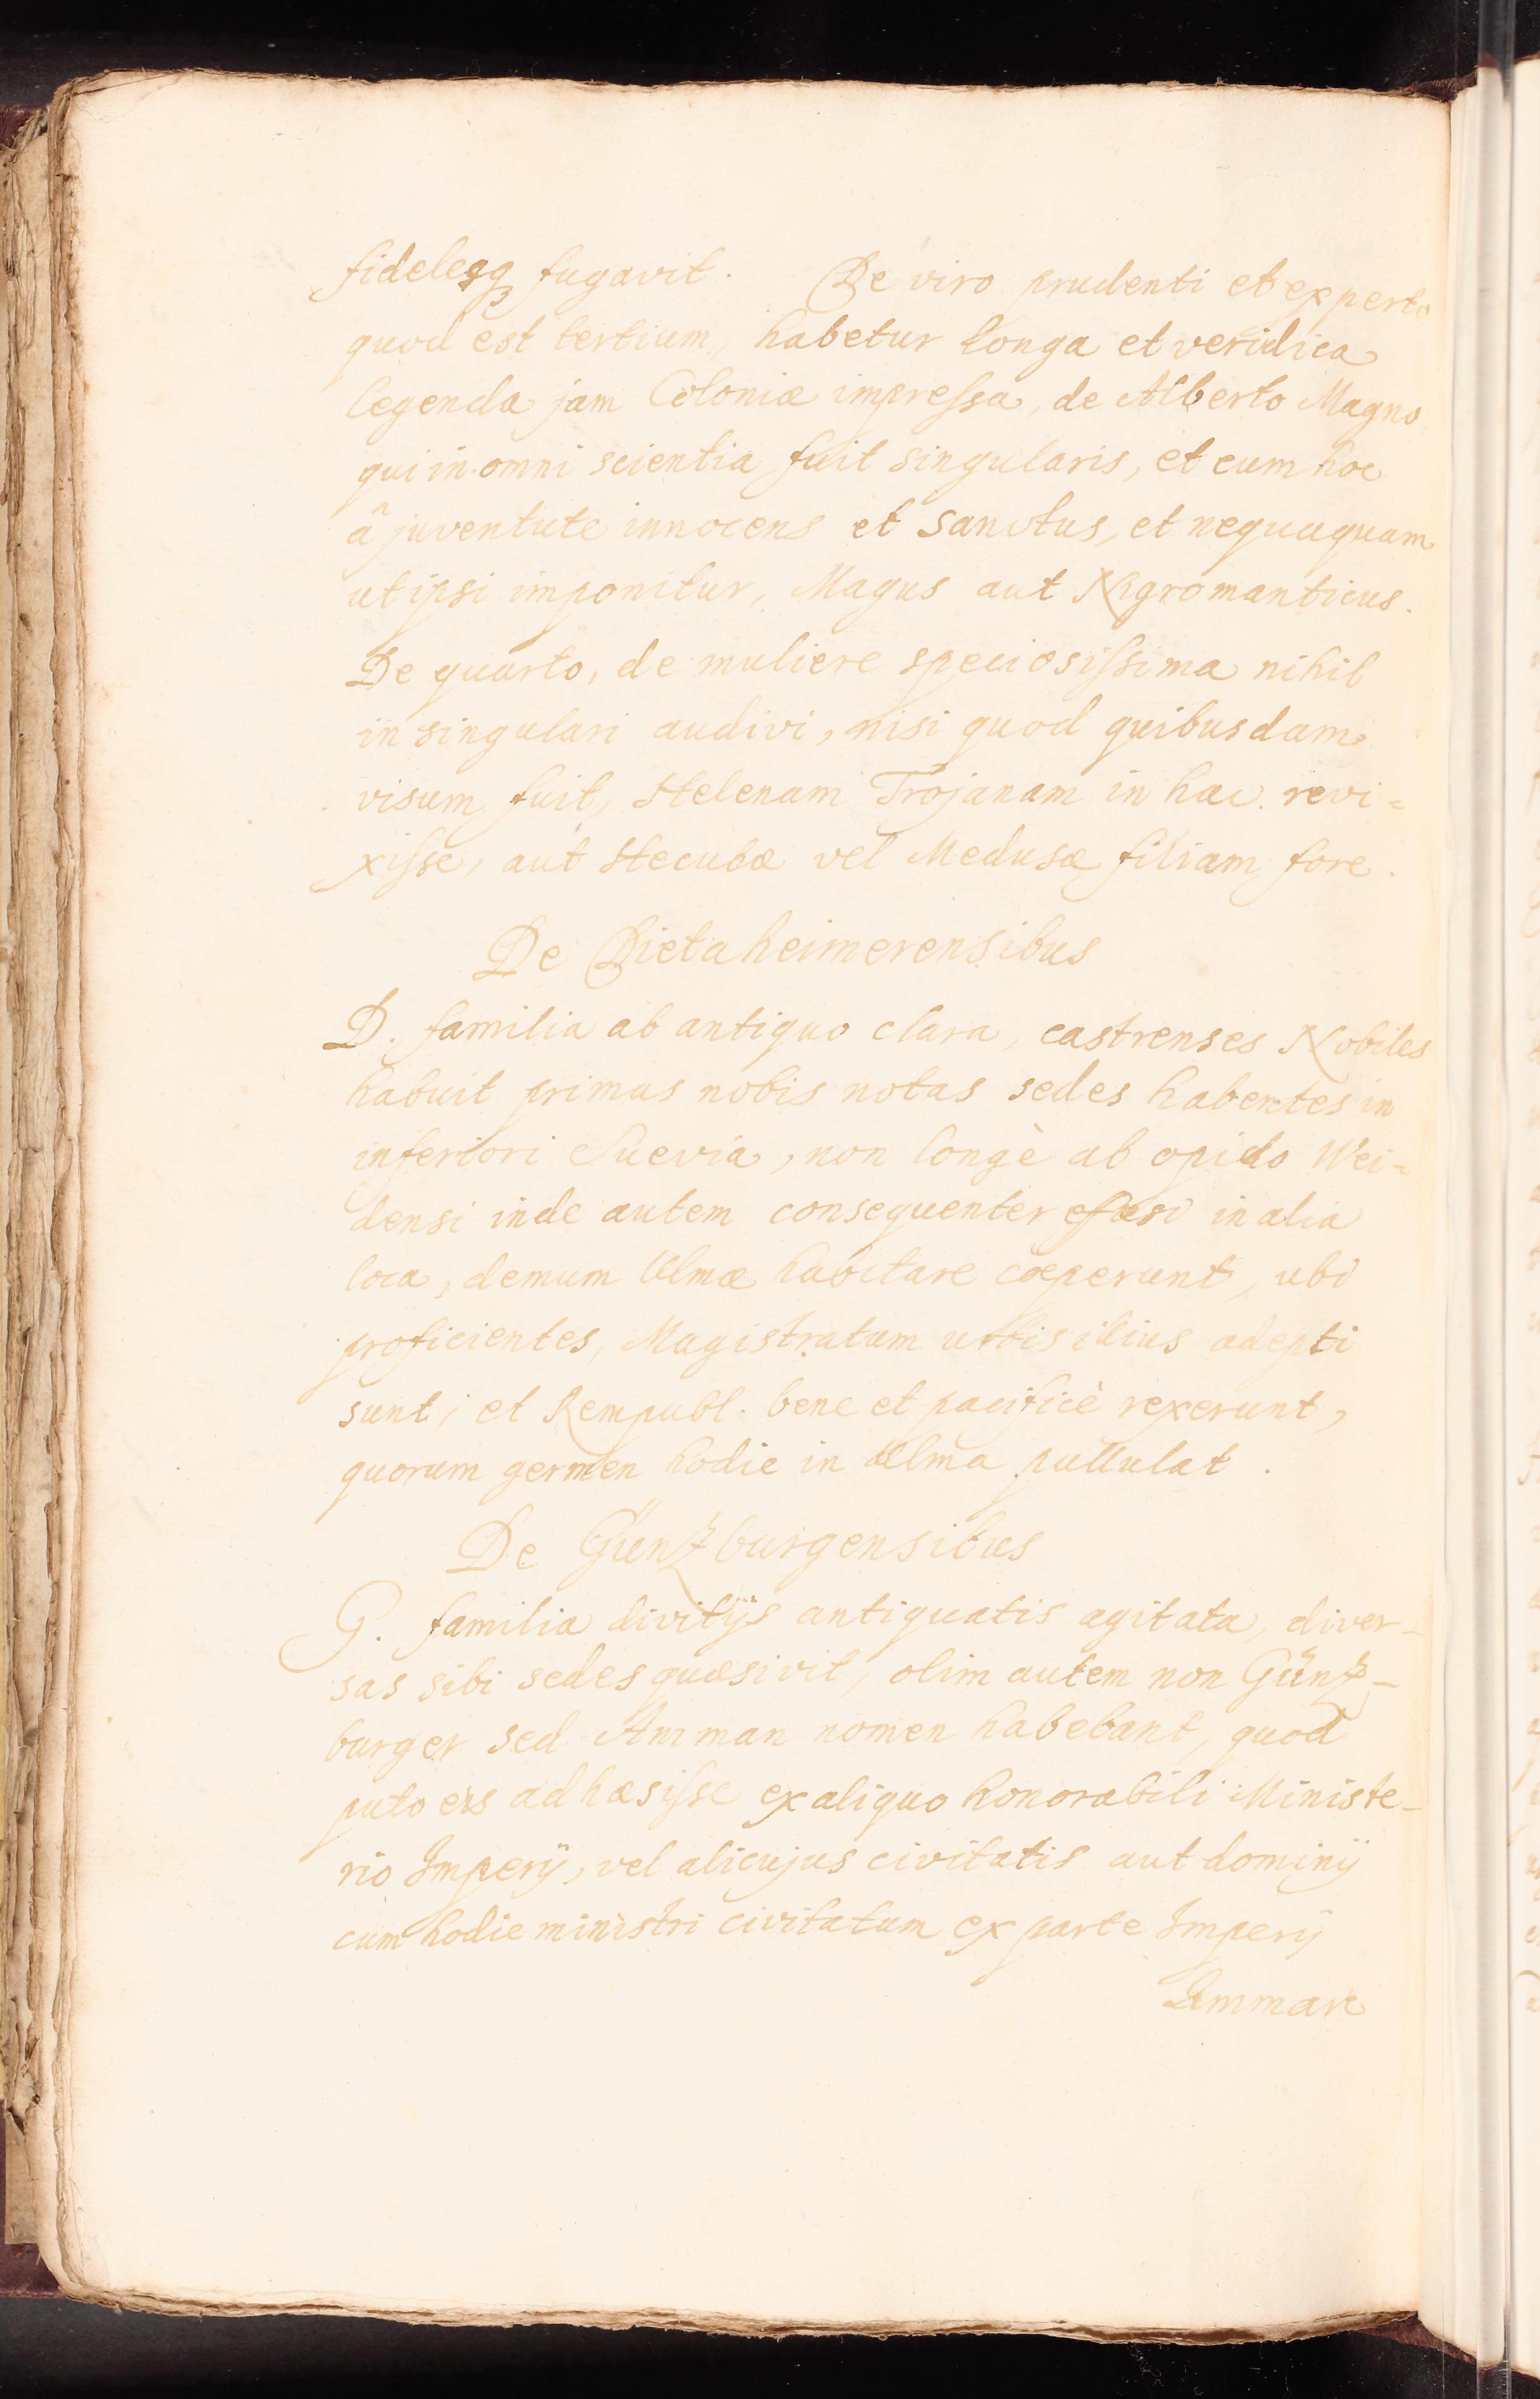 fidelesq3 fugavit. De viro prudenti et experto
quod est tertium, habetur longa et veridica
legenda jam Coloniæ impressa, de Alberto Magno
qui in omni scientia fuit singularis, et cum hoc
â juventute innocens et sanctus, et nequaquam
ut ipsi imponitur, Magus aut Nigromanticus.
De quarto, de muliere speciosissima nihil
in singulari audivi, nisi quod quibusdam
visum fuit, Helenam Trojanam in hac revi=
xisse, aut Hecubæ vel Medusæ filiam fore.
De Dietaheimerensibus
D. familia ab antiquo clara, castrenses Nobiles
habuit primas nobis notas sedes habentes in
inferiori Suevia, non longè ab opido Wei=
densi inde autem consequenter in alia
loca, demum Ulmæ habitare cœperunt, ubi
proficientes, Magistratum urbis illius adepti
sunt, et Rempubl. bene et pacificè rexerunt,
quorum germen hodie in Ulma pullulat.
De Günzburgensibus
G. familia divitijs antiquatis agitata, diver-
sas sibi sedes quæsivit, olim autem non Günz-
burger sed Amman nomen habebant, quod
puto eis adhæsisse ex aliquo honorabili Ministe-
rio Imperij, vel alicujus civitatis aut dominij
cum hodie ministri civitatum ex parte Imperij
Amman